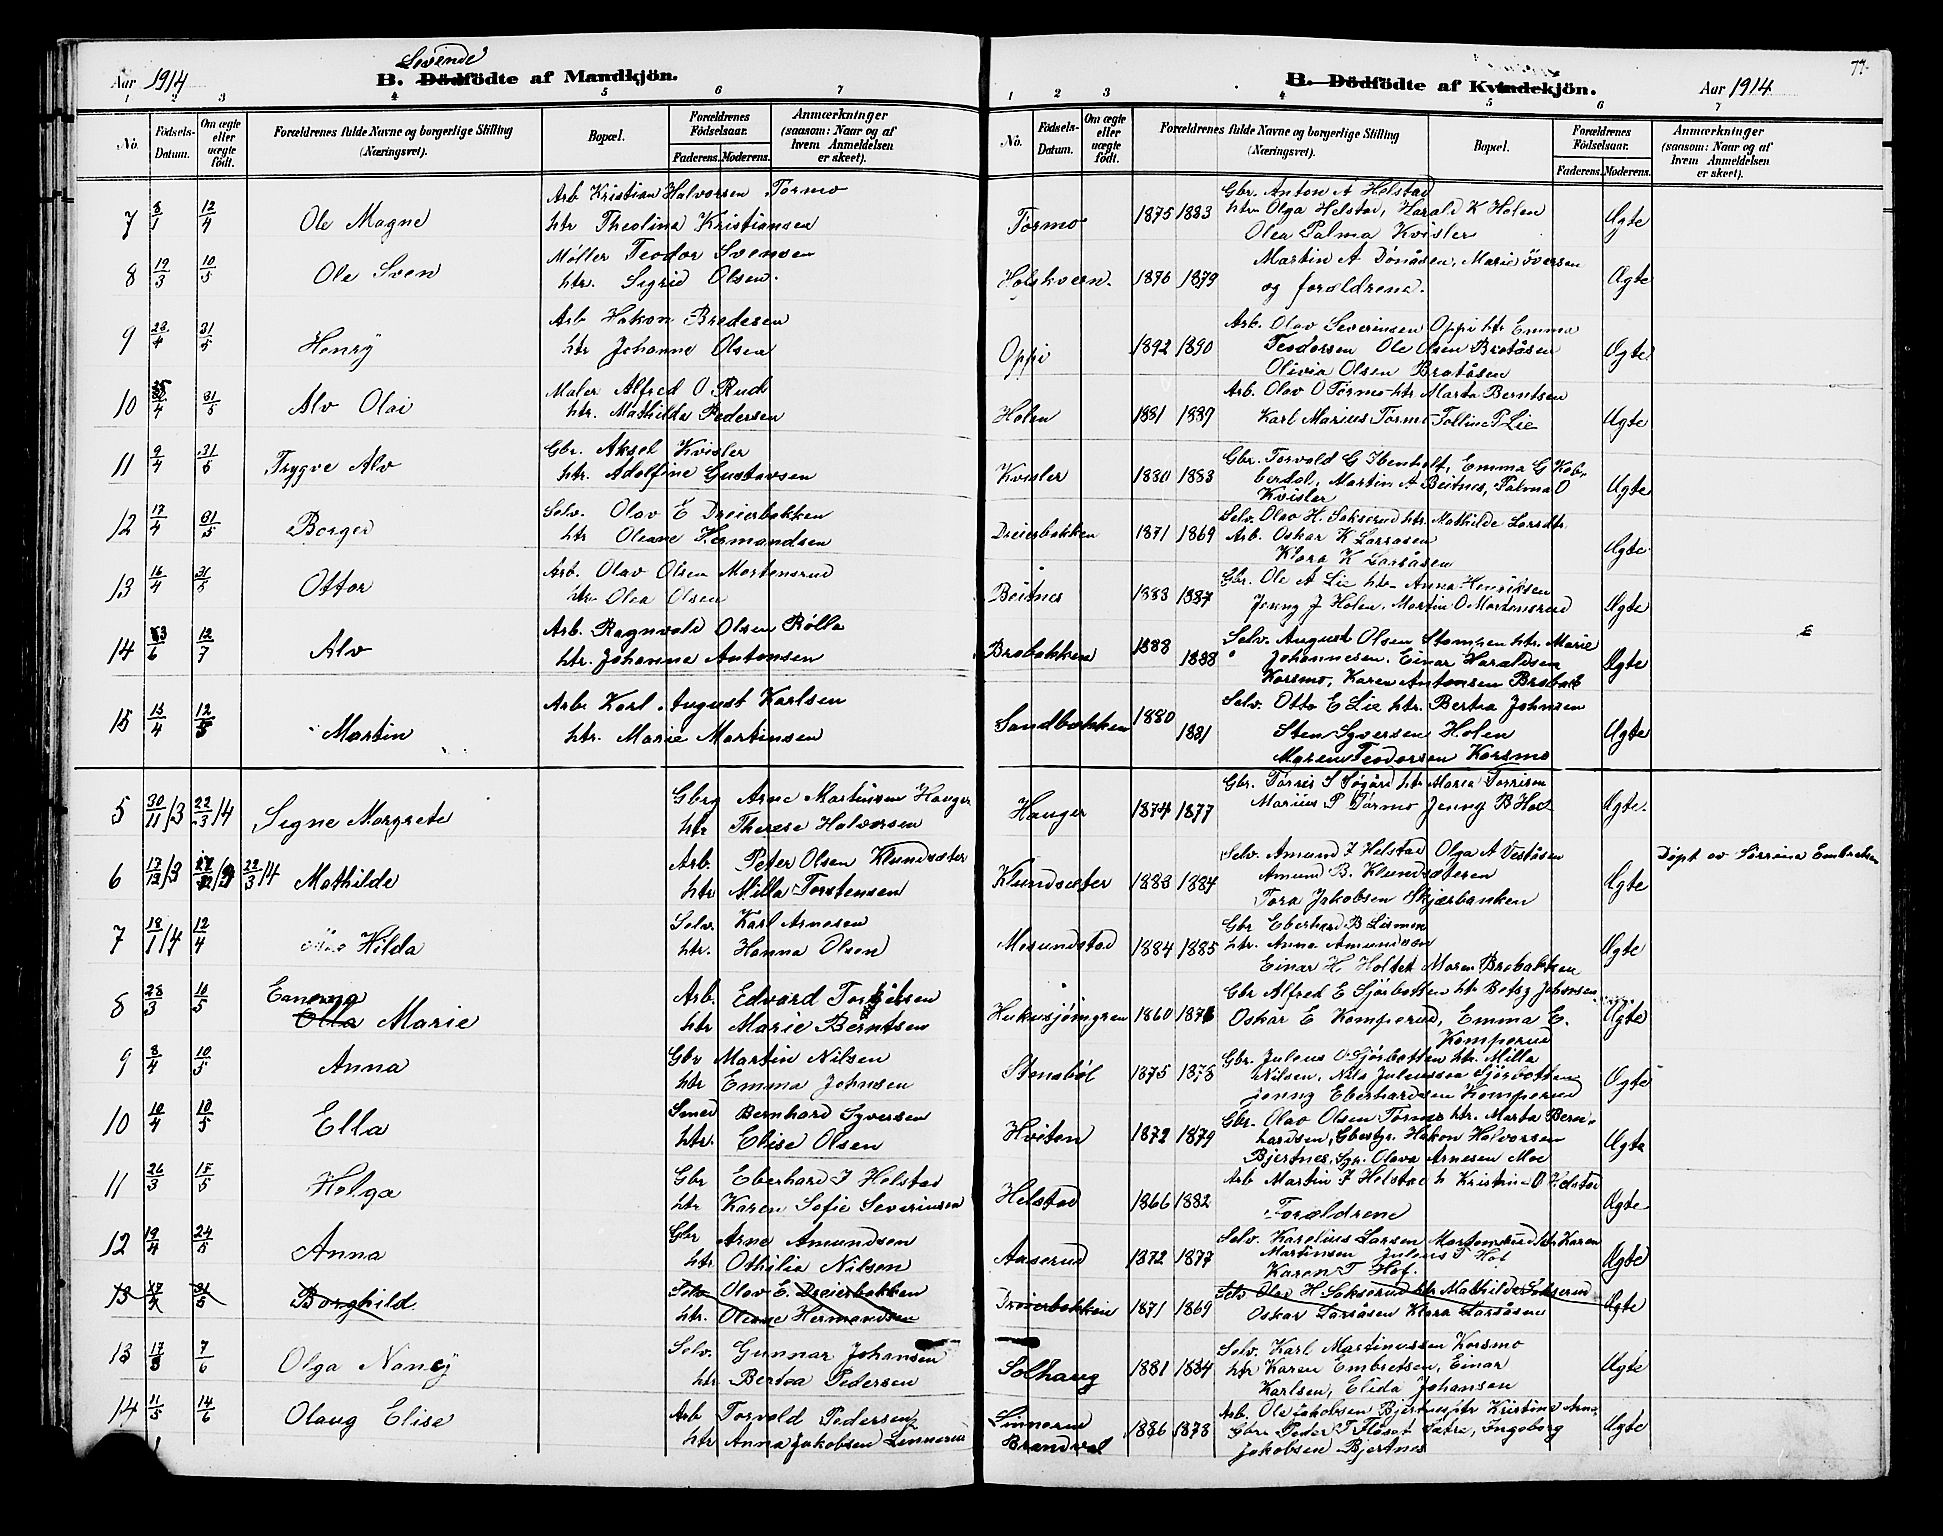 Aar 1914
Levende
B. Dödfödte af Mandkjön.
1 2 3 4 5 6 7
No. Födsels-Datum. Om ægte eller uægte födt. Forældrenes fulde Navne og borgerlige Stilling (Næringsvei). Bopæl. Forældrenes Födselsaar. Faderens. Moderens. Anmærkninger (saasom: Naar og af hvem Anmeldelsen er skeet).
B. Dödfödte af Kvindekjön.
Aar 1914
77.
1 2 3 4 5 6 7
No. Födsels-Datum. Om ægte eller uægte födt. Forældrenes fulde Navne og borgerlige Stilling (Næringsvei). Bopæl. Forældrenes Födselsaar. Faderens. Moderens. Anmærkninger (saasom: Naar og af hvem Anmeldelsen er skeet).
7 8/1 12/4 Ole Magne Arb Kristian Halvorsen Tormo
htr Theolina Kristiansen
Tormo 1875 1883 Gbr. Anton A Helstad
htr. Olga Helstad, Harald K Holen
Olea Palma Kvisler Ægte
8 19/3 10/5 Ole Sven Møller Teodor Svensen
htr. Sigrid Olsen.
Holskvern. 1876 1879 Martin A Dönåsen, Marie Iversen
og forældrene. Ægte
9 23/4 31/5 Henry Arb Hakon Bredesen
htr Johanne Olsen
Oppi 1892 1890 Arb. Olav Severinsen Oppi htr Emma
Teodorsen Ole Olsen Bratåsen
Olivia Olsen Bratåsen Ægte
10 25/4 31/5 Alv Olai Maler Alfred O. Rud
htr. Mathilde Pedersen
Holen 1881 1889 Arb. Olav O Tormo htr Marta Berntsen
Karl Marius Tormo Tolline P Lie Ægte
11 9/4 31/5 Trygve Alv Gbr. Aksel Kvisler
htr. Adolfine Gustavsen
Kvisler 1880 1883 Gbr. Torvald G Ibenholt, Emma G Kob-
berdal, Martin A Beitnes, Palma O
Kvisler Ægte
12 17/4 31/5 Borger Selv. Olav E Dreierbakken
htr Oleane Hermandsen
Dreierbakken 1871 1869 Selv. Olav H. Sakserud htr. Mathilde Larsdtr.
Arb. Oskar K Larsåsen
Klara K Larsåsen Ægte
13 16/4 31/5 Ottar Arb. Olav Olsen Mortensrud
htr. Olea Olsen
Beitnes 1883 1887 Gbr. Ole A Lie htr. Anna Henriksen
Jenny J Holen. Martin O Mortensrud Ægte
14 3/6 12/7 Alv Arb. Ragnvald Olsen Rölla
htr. Johanna Antonsen
Brobakken 1888 1888 Selv. August Olsen Stampen htr. Marie
Johannesen. Einar Haraldsen
Korsmo, Karen Antonsen Brobak Ægte
15 13/4 12/5 Martin Arb. Karl August Karlsen
htr. Marie Martinsen
Sandbakken 1880 1881 Selv. Otto E Lie htr. Bertea Johnsen
Sten Syversen Holen
Maren Teodorsen Korsmo Ægte
5 30/11/13 22/3/14 Signe Margrete Gbrg Arne Martinsen Hauger
htr Therese Halvorsen
Hauger 1874 1877 Gbr. Torris S Søgård htr Maria Torrisen
Marius P Tormo Jenny B Hoel Ægte.
6 17/12/13 22/3/14 Mathilde Arb. Peter Olsen Klundsæter
htr Milla Torstensen
Klundsæter 1883 1884 Selv. Amund J Helstad Olga A Veståsen
Amund B. Klundsæteren
Tora Jakobsen Skjærbanken Ægte Döpt av Serrina Embretsen
7 18/1/14 12/4 Hilda Selv. Karl Arnesen
htr. Hanna Olsen
Mosundstad 1884 1885 Gbr Eberhard B Lismoen
htr. Anna Amundsen
Einar H Holtet Maren Brobakken Ægte
8 28/3 10/5 Emma
Olla Marie Arb. Edvard Torkjelsen
htr Marie Berntsen
Hukusjöengren 1860 1871 Gbr Alfred E Sjöbotten htr Betzy Johnsen
Oskar E Komperud, Emma E.
Komperud Ægte
9 8/4 10/5 Anna Gbr Martin Nilsen
htr Emma Johnsen
Stensböl 1875 1878 Gbr. Juleus O Sjöbotten htr. Milla
Nilsen, Nils Juleussen Sjöbotten
Jenny Eberhardsen Komperud Ægte
10 10/4 10/5 Ella Smed Bernhard Syversen
htr. Elise Olsen
Hviten 1872 1879 Gbr. Olav Olsen Tormo htr. Marta Bern-
hardsen, Gbestyr. Hakon Halvorsen
Bjertnes, Spr. Olava Arnesen Moe Ægte
11 26/3 15/5 Helga Gbr Eberhard J Helstad
htr Karen Sofie Severinsen
Helstad 1866 1882 Arb Martin J Helstad h Kristine O Helstad
Forældrene Ægte
12 19/4 24/5 Anna Gbr Arne Amundsen
htr. Othilie Nilsen
Aaserud 1872 1877 Selv. Karelius Larsen Mortensrud htr Karen
Martinsen Juleus T Hof
Karen T Hof. Ægte
13 17/4 31/5 Borghild Selv Olav E. Dreierbakken
htr. Oleane Hermandsen
Dreierbakken 1871 1869 Selv Olav H Sakserud htr Mathilde Sakserud
Oskar Larsåsen Klara Larsåsen Ægte
13 17/3 7/6 Olga Nancy Selv. Gunnar Johansen
htr Bertea Pedersen
Solhaug 1881 1884 Selv. Karl Martinussen Korsmo
htr Karen Embretsen, Einar
Karlsen, Elida Johansen Ægte
14 11/5 14/6 Olaug Elise Arb Torvald Pedersen
htr Anna Jakobsen Linnerud
Linnerud
Brandval 1886 1878 Arb. Ole Jakobsen Bjertnes htr Kristine Arne
Gbr Peder T Flöset Sætre, Ingeborg
Jakobsen Bjertnes Ægte